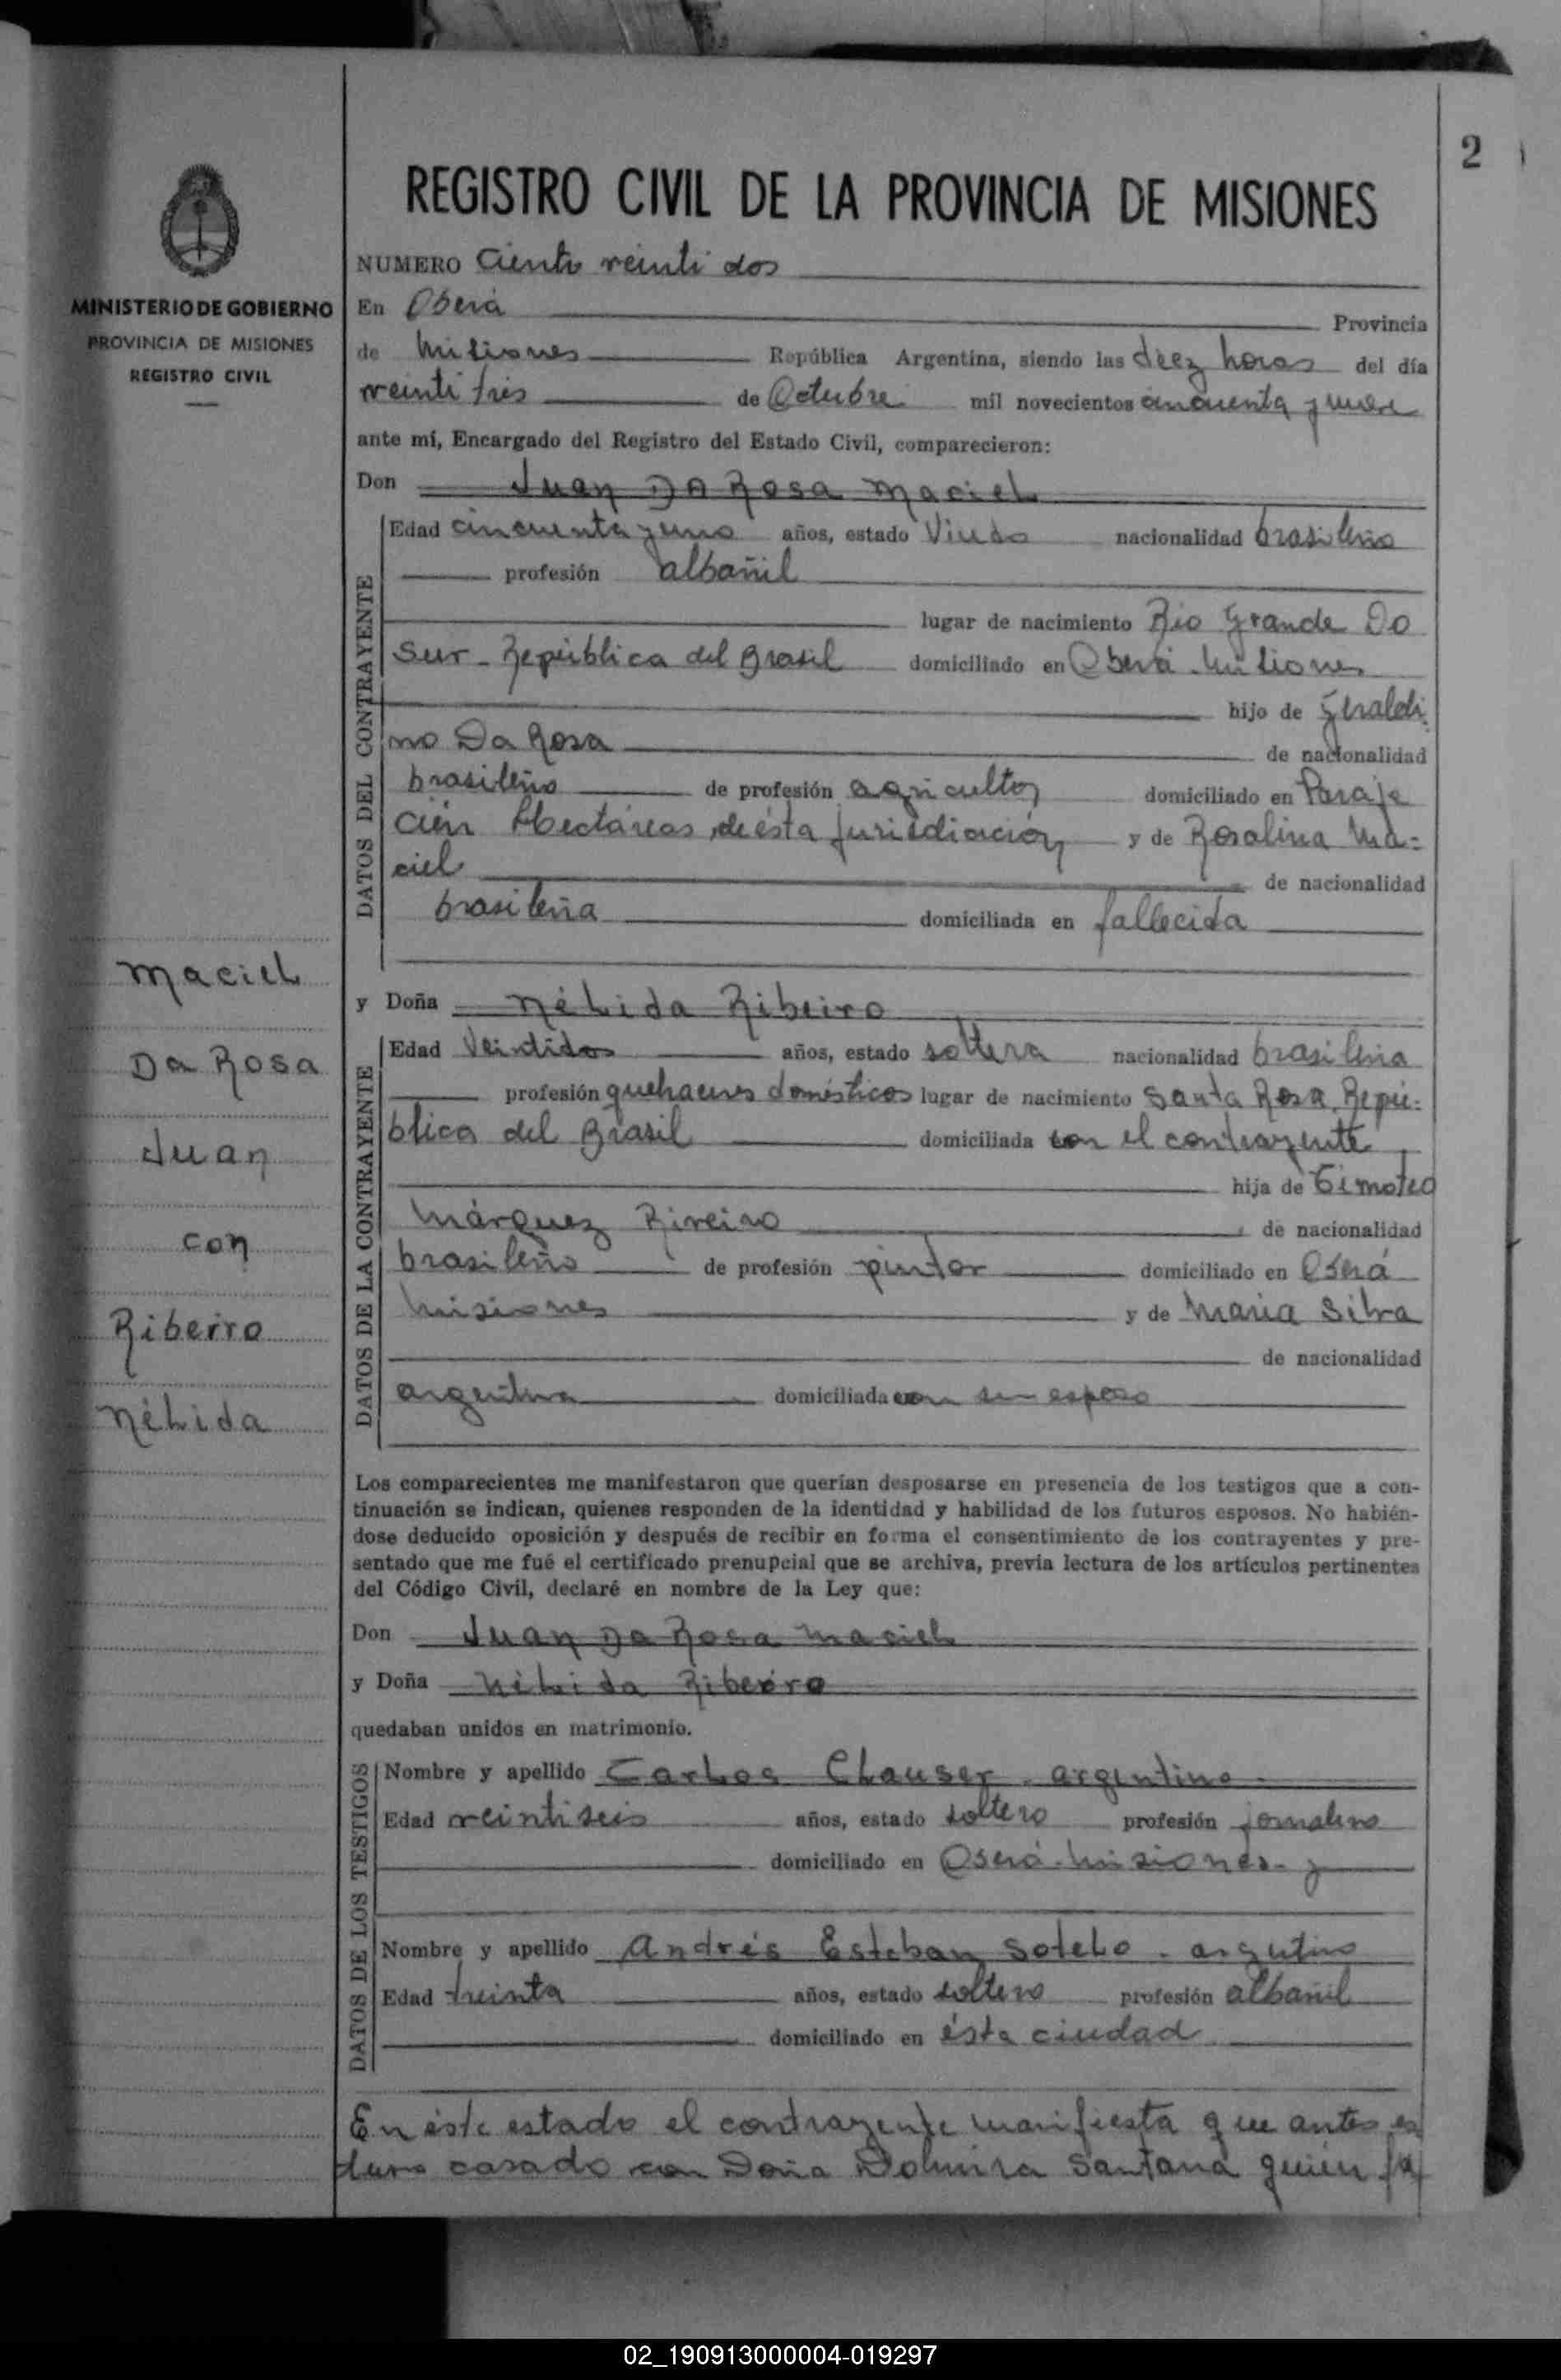 2
REGISTRO CIVIL DE LA PROVINCIA DE MISIONES
MINISTERIO DE GOBIERNO
PROVINCIA DE MISIONES
REGISTRO CIVIL
NUMERO Ciento veinti dos
En Oberá Provincia
de Misiones República Argentina, siendo las diez horas del día
veinti tres de Octubre mil novecientos cincuenta y nueve
ante mí, Encargado del Registro del Estado Civil, comparecieron:
Don Juan DA Rosa Maciel
DATOS DEL CONTRAYENTE
Edad cincuenta y uno años, estado Viudo nacionalidad brasileño
profesión albañil
lugar de nacimiento Rio Grande Do
Sur - República del Brasil domiciliado en Oberá - Misiones
hijo de Geraldi
no Da Rosa de nacionalidad
brasileño de profesión agricultor domiciliado en Paraje
Cién Hectáreas, de ésta jurisdicción y de Rosalina Ma=
ciel de nacionalidad
brasileña domiciliada en fallecida
y Doña Nélida Ribeiro
DATOS DE LA CONTRAYENTE
Edad Veintidos años, estado soltera nacionalidad brasileña
profesión quehaceres domésticos lugar de nacimiento Santa Rosa, Repú=
blica del Brasil domiciliada con el contrayente
hija de Timoteo
Márquez Riveiro de nacionalidad
brasileño de profesión pintor domiciliado en Oberá
Misiones y de Maria Silva
de nacionalidad
argentina domiciliada con su esposo
Maciel
Da Rosa
Juan
con
Ribeiro
Nélida
Los comparecientes me manifestaron que querían desposarse en presencia de los testigos que a con-
tinuación se indican, quienes responden de la identidad y habilidad de los futuros esposos. No habién-
dose deducido oposición y después de recibir en forma el consentimiento de los contrayentes y pre-
sentado que me fué el certificado prenupcial que se archiva, previa lectura de los artículos pertinentes
del Código Civil, declaré en nombre de la Ley que:
Don Juan Da Rosa Maciel
y Doña Nélida Ribeiro
quedaban unidos en matrimonio.
DATOS DE LOS TESTIGOS
Nombre y apellido Carlos Clauser - argentino -
Edad veintiseis años, estado soltero profesión jornalero
domiciliado en Oberá - Misiones - y
Nombre y apellido Andrés Esteban Sotelo - argentino
Edad treinta años, estado soltero profesión albañil
domiciliado en ésta ciudad
En éste estado el contrayente manifiesta que antes es
tuvo casado con Doña Dolmira Santana quién fa
02_190913000004-019297